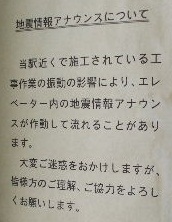 地震情報アナウンスについて
当駅近くで施工されている工
事作業の振動の影響により、エレ
ベーター内の地震情報アナウン
スが作動して流れることがあり
ます。
大変ご迷惑をおかけしますが、
皆様方のご理解、ご協力をよろし
くお願いします。